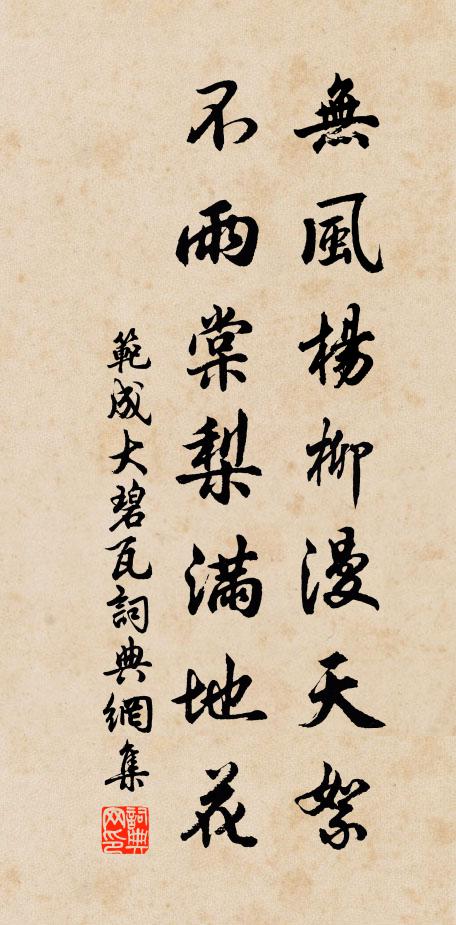 無風楊柳漫天絮
不雨棠梨滿地花
範成大碧瓦詞典網集
詞典网印